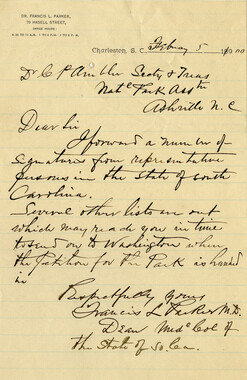 DR. FRANCIS L. PARKER,
70 HASELL STREET,
OFFICE HOURS:
Charleston, S. C. Feby 5 1900
Dr C P Ambler Secty & Treas
Natl Park Assn
Asheville N. C
Dear Sir
I forward a number of
signatures from representative
persons in the State of South
Carolina.
Several other lists are out
which may reach you in time
to send on to Washington when
the Petition for the Park is handed
in
Respectfully yours
Francis L Parker M.D.
Dean Medl Col of
the State of So. Ca.